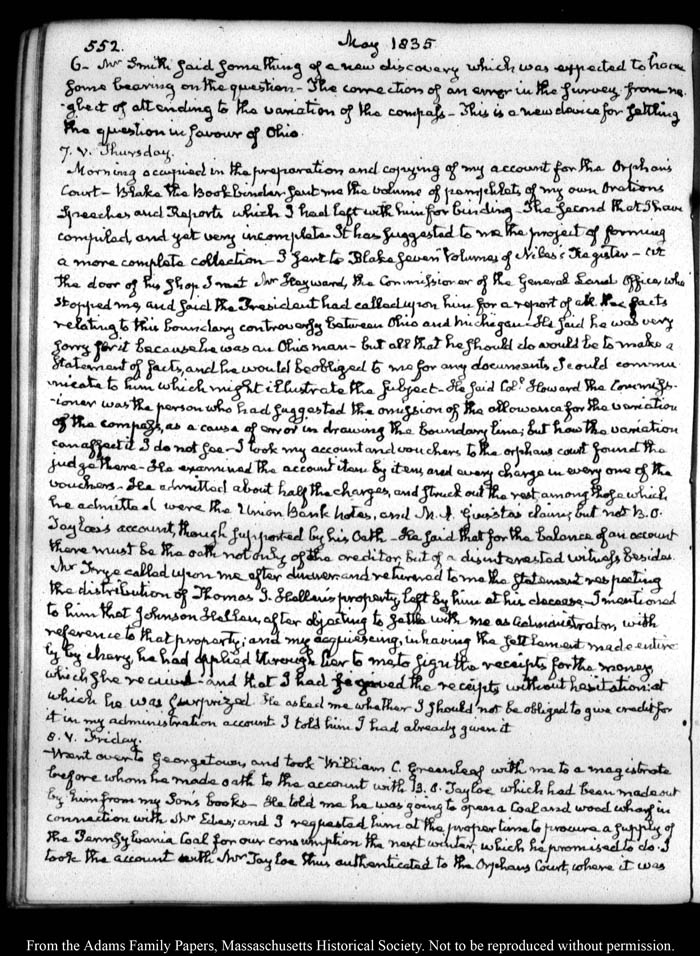 552. May 1835
6— Mr Smith said something of a new discovery which was expected to have
some bearing on the question— The correction of an error in the survey from ne
glect of attending to the variation of the compass— This is a new device for settling
the question in favour of Ohio.
7. V. Thursday.
Morning occupied in the preparation and copying of my account for the Orphans
Court— Blake the Bookbinder sent me the volume of pamphlets of my own Orations
Speeches and Reports which I had left with him for binding— The second that I have
compiled, and yet very incomplete. It has suggested to me the project of forming
a more complete collection— I sent to Blake seven Volumes of Niles's Register— At
the door of his shop I met Mr Hayward, the Commissioner of the General Land Office, who
stopped me, and said the President had called upon him for a report of all the facts
relating to this boundary controversy between Ohio and Michigan. He said he was very
sorry for it because he was an Ohio man— but all that he should do would be to make a
Statement of facts, and he would be obliged to me for any documents I could commu
nicate to him which might illustrate the subject— He said Col. Howard the Commiss-
-ioner was the person who had suggested the omission of the allowance for the variation
of the compass, as a cause of error in drawing the boundary line; but how the variation
can affect it I do not see— I took my account and vouchers to the orphans court found the
judge there— He examined the account item by item, and every charge in every one of the
vouchers— He admitted about half the charges, and struck out the rest among those which
he admitted were the Union Bank notes, and M. claim, but not B. O.
Tayloe's account, though supported by his Oath— He said that for the balance of an account
there must be the oath not only of the creditor, but of a disinterested witness besides.
Mr Frye called upon me after dinner and returned to me the Statement respecting
the distribution of Thomas J. Hellen's property, left by him at his decease— I mentioned
to him that Johnson Hellen, after objecting to settle with me as Administrator, with
reference to that property; and my acquiescing, in having the settlement made entire
ly by chery, he had applied through her to me to sign the receipts for the money
which she received— and that I had signed the receipts without hesitation: at
which he was surprized. He asked me whether I should not be obliged to give credit for
it in my administration account I told him I had already given it
8. V. Friday.
Went over to Georgetown, and took William C. Greenleaf with me to a magistrate
before whom he made oath to the account with B. O. Tayloe which had been made out
by him from my Son's books— He told me he was going to open a Coal and wood wharf in
connection with Mr and I requested him at the proper time to procure a supply of
the Pennsylvania Coal for our consumption the next winter, which he promised to do. I
took the account with Mr Tayloe thus authenticated to the Orphans Court, where it was
From the Adams Family Papers, Massachusetts Historical Society. Not to be reproduced without permission.